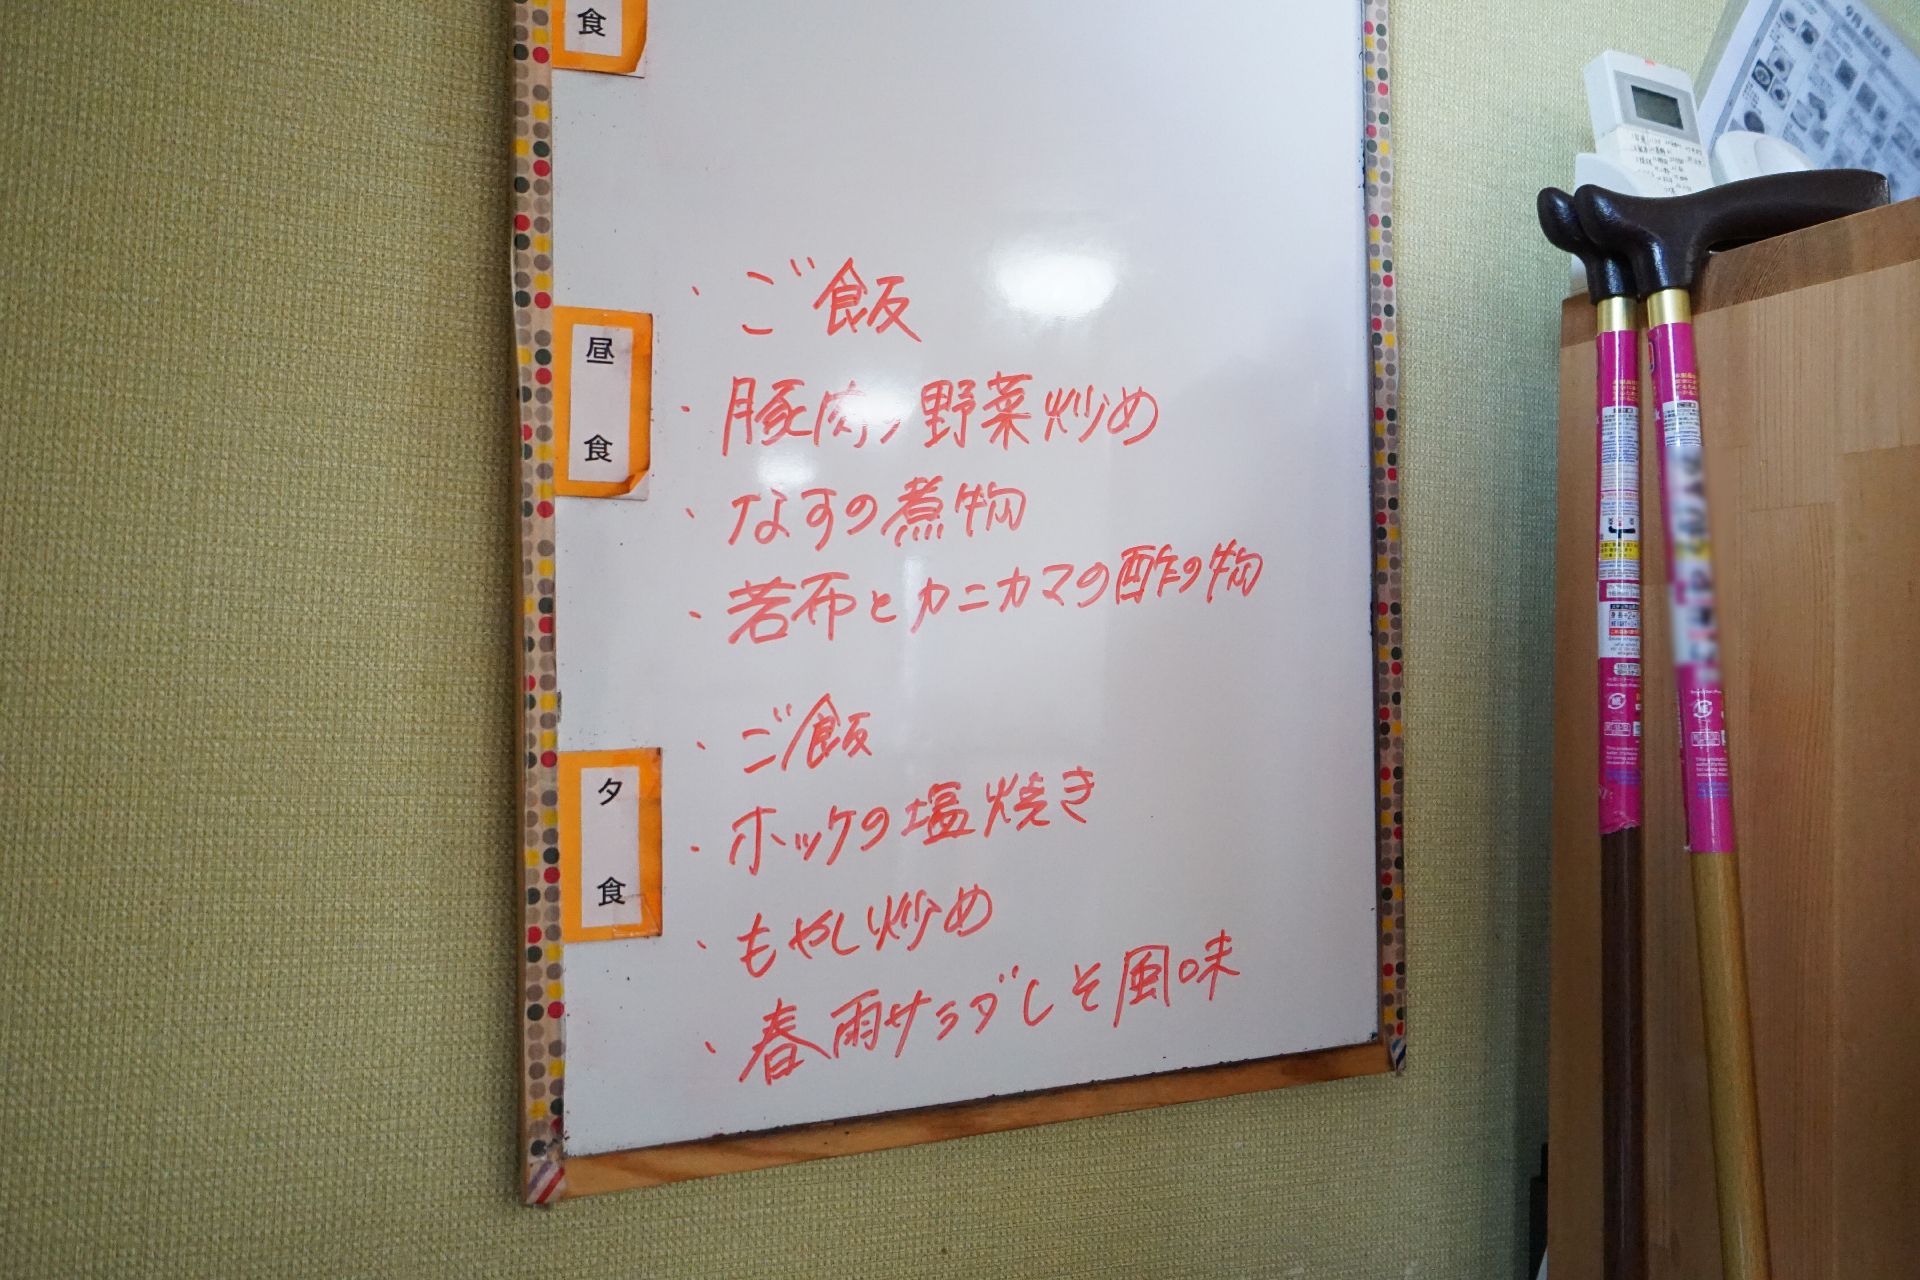 食
昼食
・ご飯
・豚肉ノ野菜炒め
・なすの煮物
・若布とカニカマの酢の物
夕食
・ご飯
・ホッケの塩焼き
・もやし炒め
・春雨サラダしそ風味